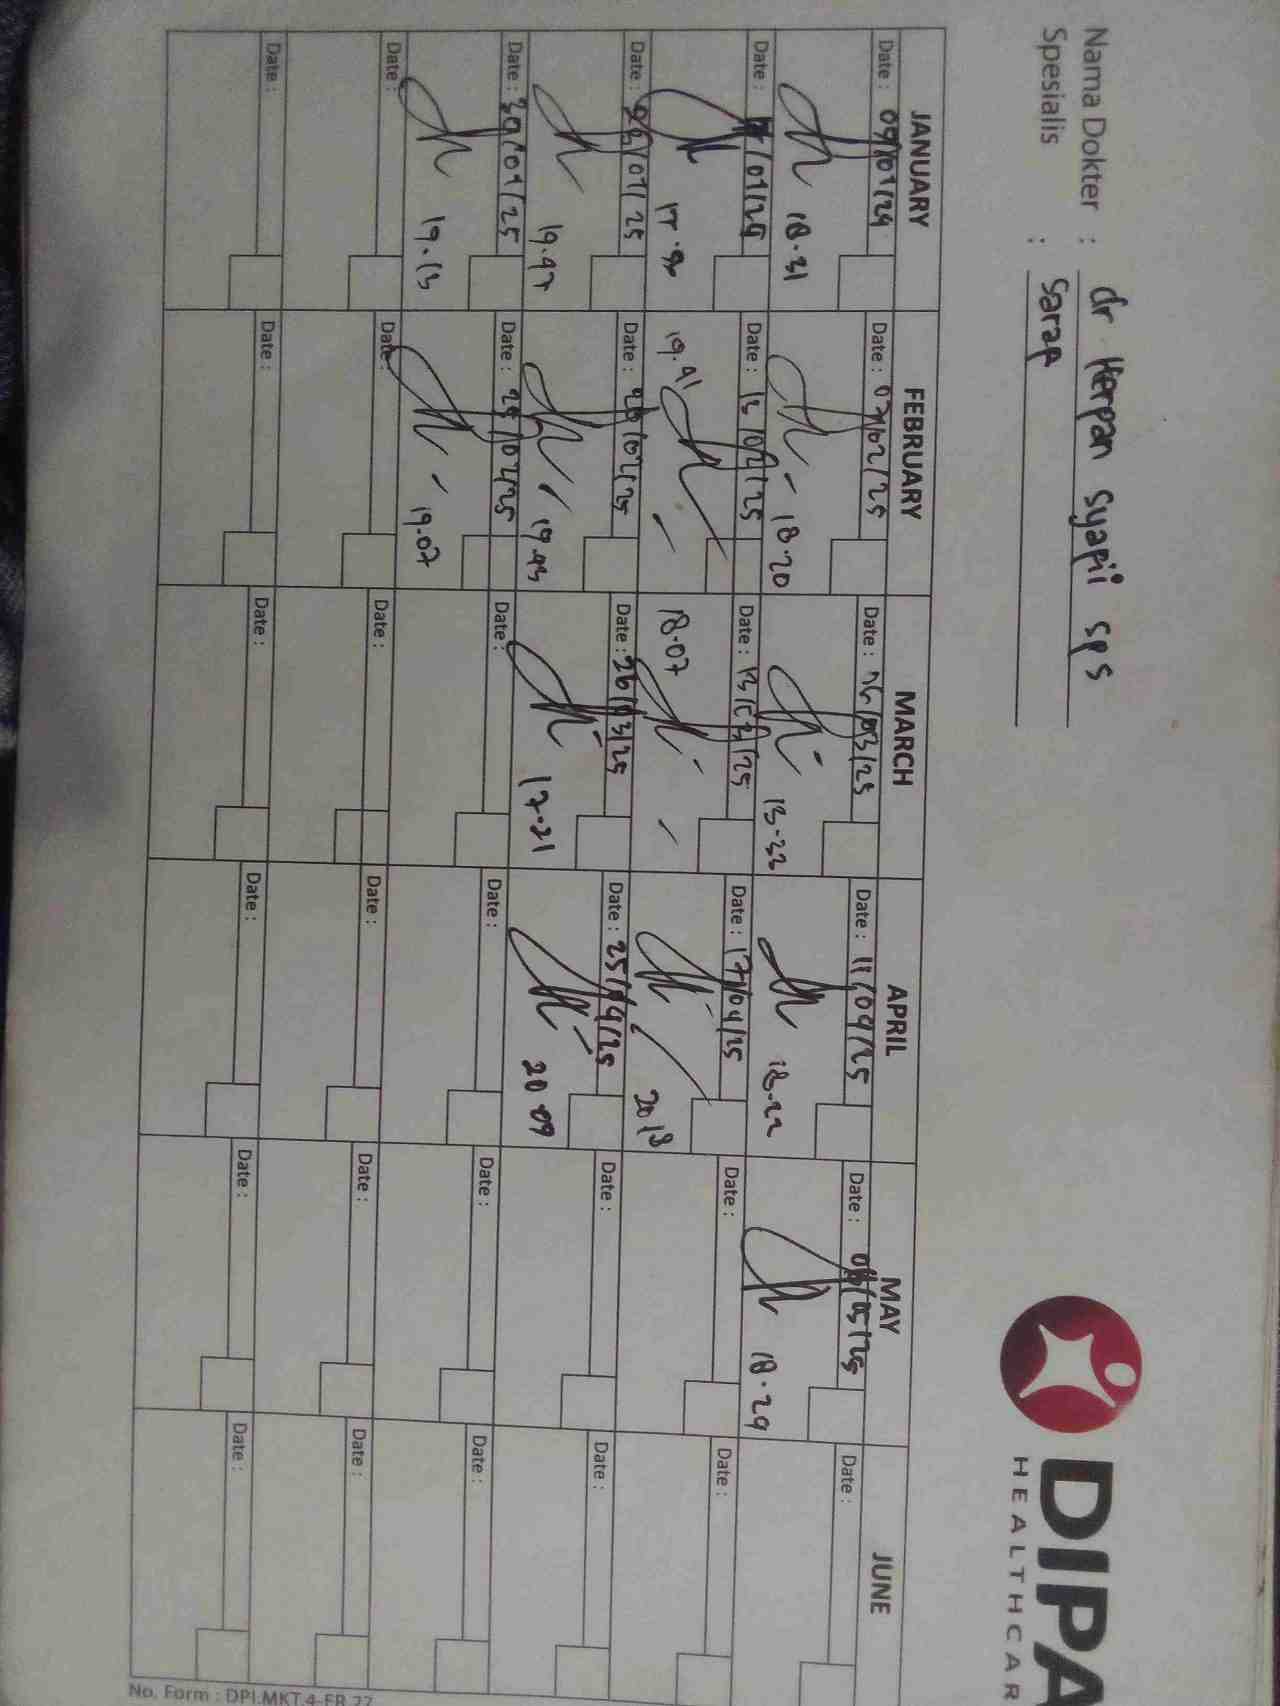 Nama Dokter : dr Herpan Syapii SpS
Spesialis : Sarap
DIPA
HEALTHCAR
JANUARY FEBRUARY MARCH APRIL MAY JUNE
Date : 09/01/24 Date : 07/02/25 Date : 06/03/25 Date : 11/04/25 Date : 06/05/25 Date :
18.31 18.20 13.32 18.22 18.29
Date : /01/25 Date : 13/02/25 Date : 13/03/25 Date : 17/04/25 Date : Date :
19.41 18.07 20 18
Date : /01/25 Date : 20/02/25 Date : 26/03/25 Date : 25/04/25 Date : Date :
19.47 19.43 17.21 20 09
Date : 30/01/25 Date : 25/02/25 Date : Date : Date : Date :
19.13 19.07
Date : Date : Date : Date : Date : Date :
Date : Date : Date : Date : Date : Date :
No. Form : DPI.MKT.4-FR.22